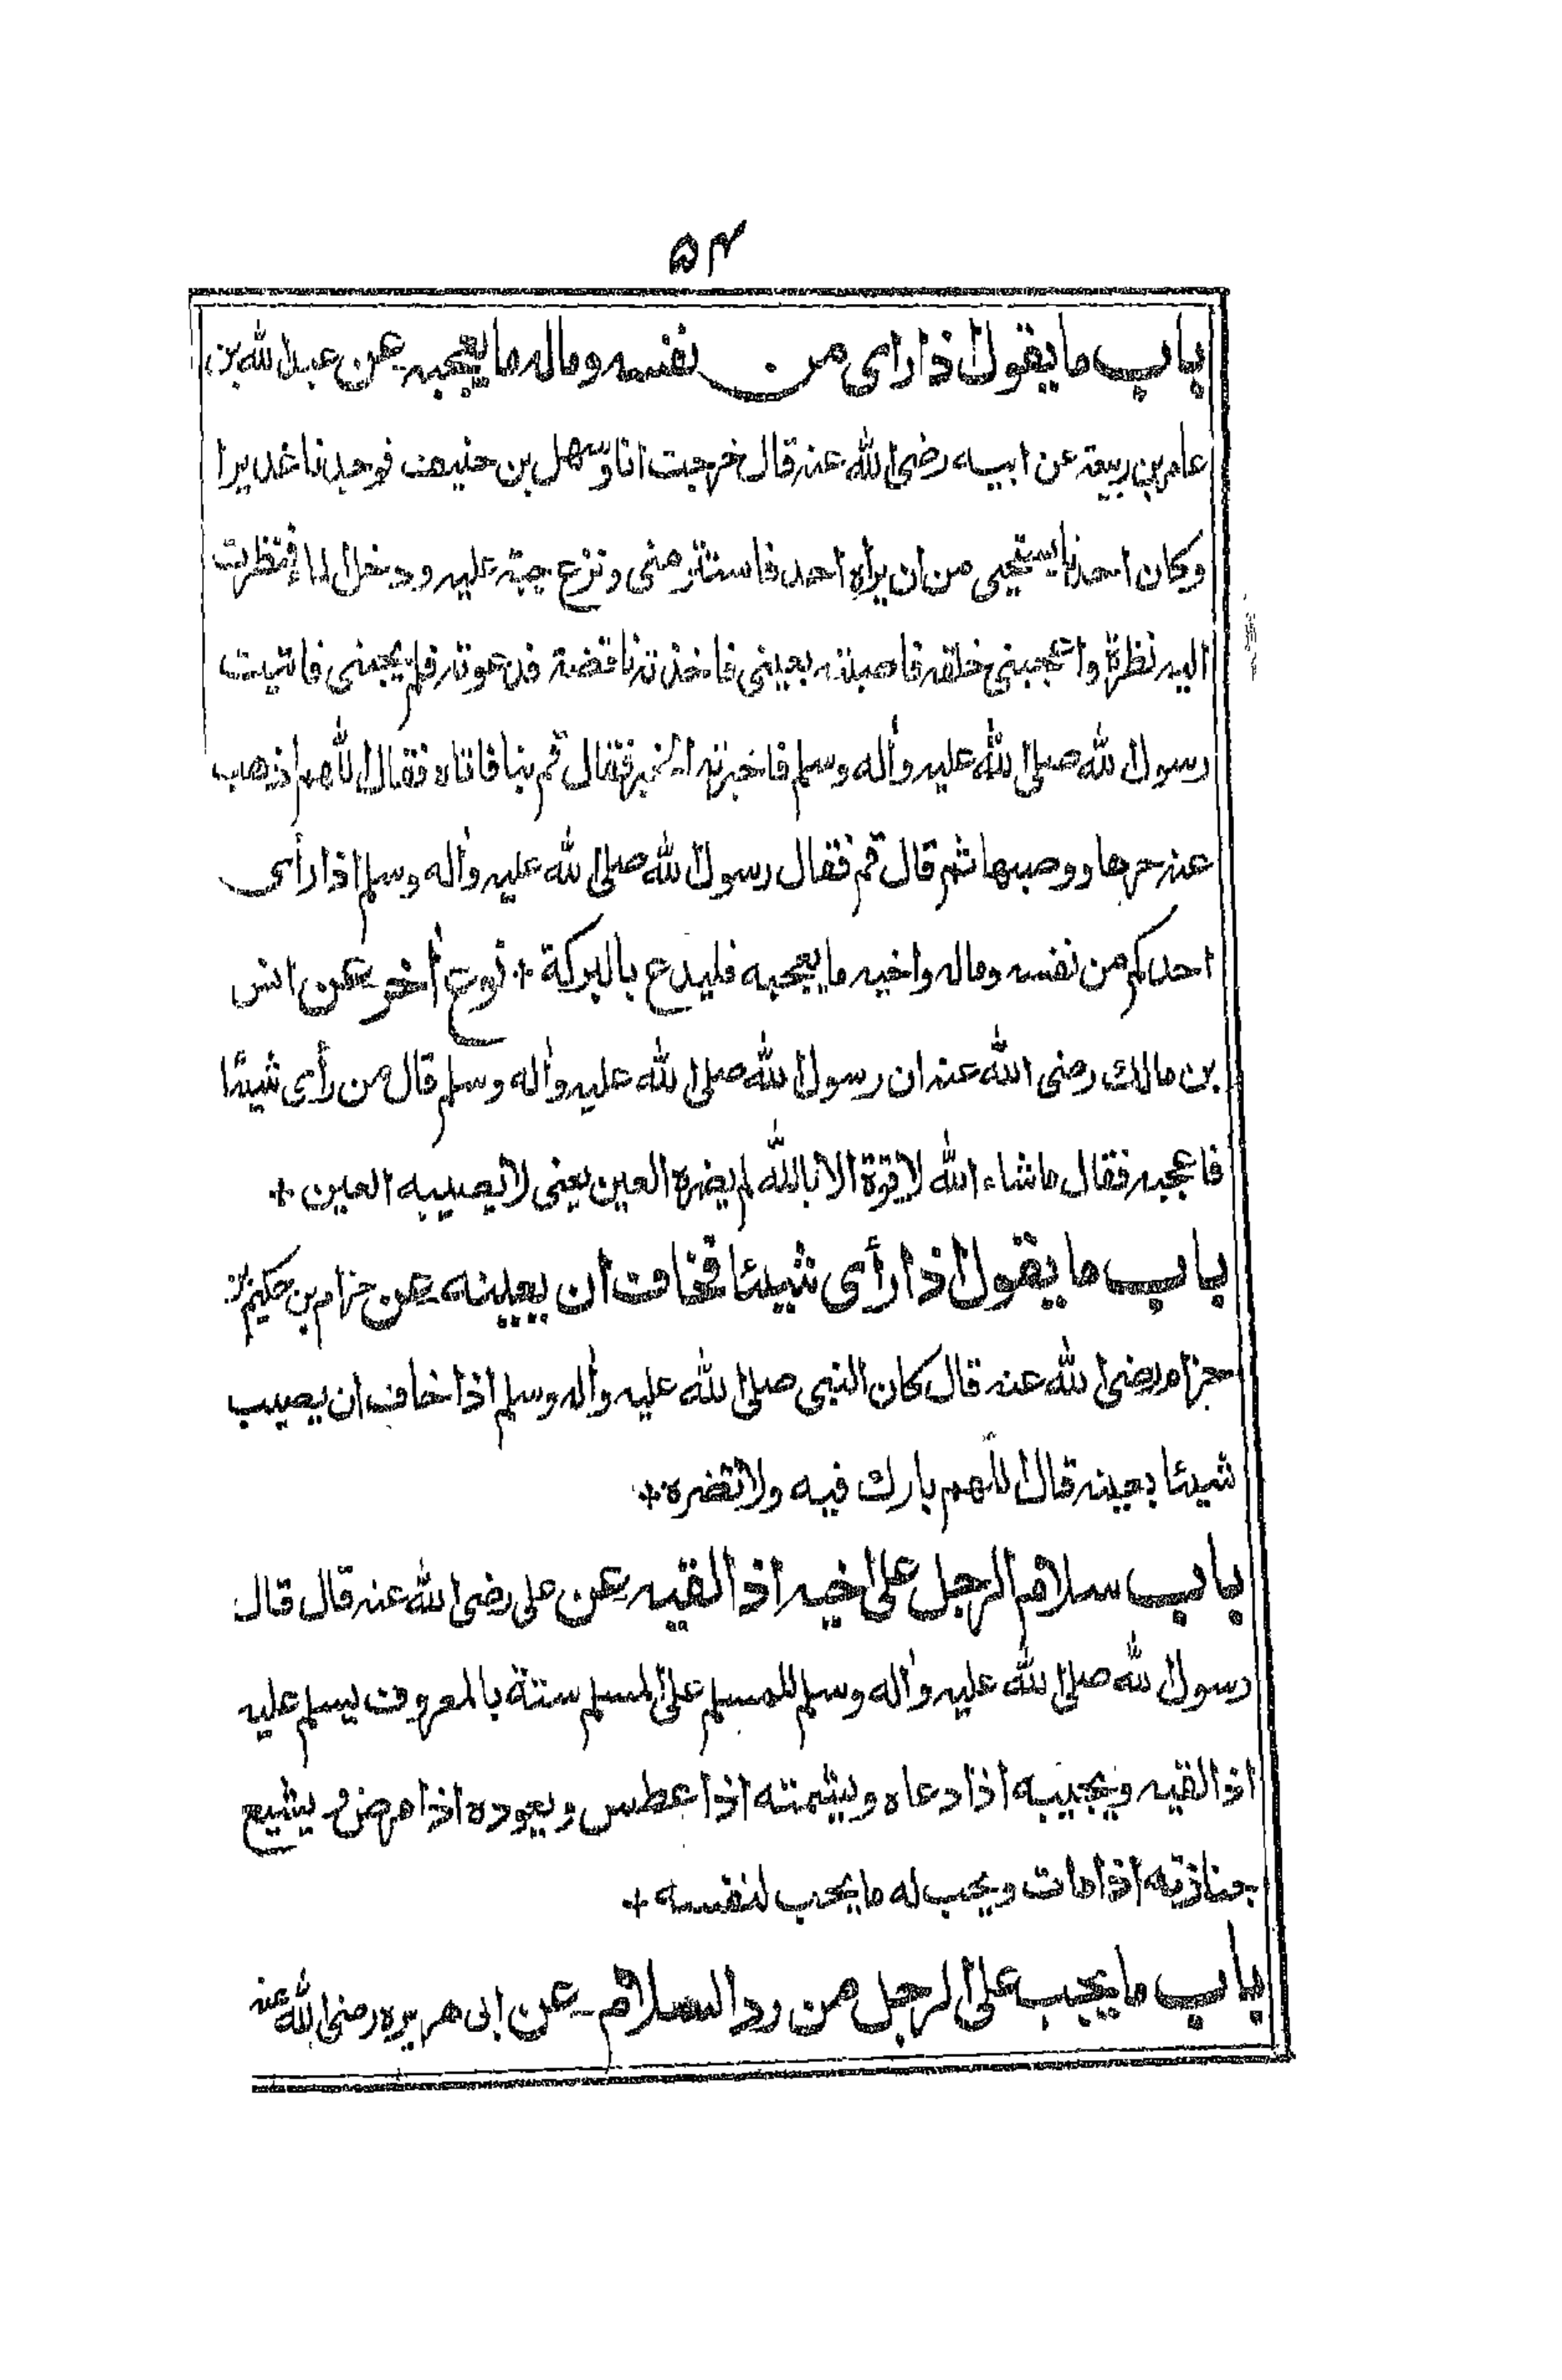 ۵۴
باب ما يقول اذا رای من نفسه وماله ما يعجبه عن عبد الله بن
عامر بن ربيعة عن ابيه رضی الله عنه قال خرجت انا وسهل بن حنيف فوجدنا غديرا
وكان احدنا يستحيی من ان يراه احد فاستتر منی ونزع جبة عليه ودخل الماء فنظرت
اليه نظرة واعجبنی خلقه فاصبته بعينی فاخذته ناقضة فدعوته فلم يجبنی فاتيت
رسول الله صلی الله عليه وأله وسلم فاخبرته الخبر فقال قم بنا فاتاه فقال اللهم اذهب
عنه حرها ووصبها ثم قال قم فقال رسول الله صلی الله عليه وأله وسلم اذا رأی
احدكم من نفسه وماله واخيه ما يعجبه فليدع بالبركة + نوع أخر عن انس
بن مالك رضی الله عنه ان رسول الله صلی الله عليه وأله وسلم قال من رأی شيئا
فاعجبه فقال ماشاء الله لا قوة الا بالله لم يضره العين يعنی لا يصيبه العين +
باب ما يقول اذا رأی شيئا فخاف ان يعينه عن حزام بن حكيم بن
حزام رضی الله عنه قال كان النبی صلی الله عليه وأله وسلم اذا خاف ان يصيب
شيئا بعينه قال اللهم بارك فيه ولا تضره +
باب سلام الرجل علی اخيه اذا لقيه عن علی رضی الله عنه قال قال
رسول الله صلی الله عليه وأله وسلم للمسلم علی المسلم ستة بالمعروف يسلم عليه
اذا لقيه ويجيبه اذا دعاه ويشمته اذا عطس ويعوده اذا مرض ويشيع
جنازته اذا مات ويحب له ما يحب لنفسه +
باب ما يجب علی الرجل من رد السلام - عن ابی هريره رضی الله عنه